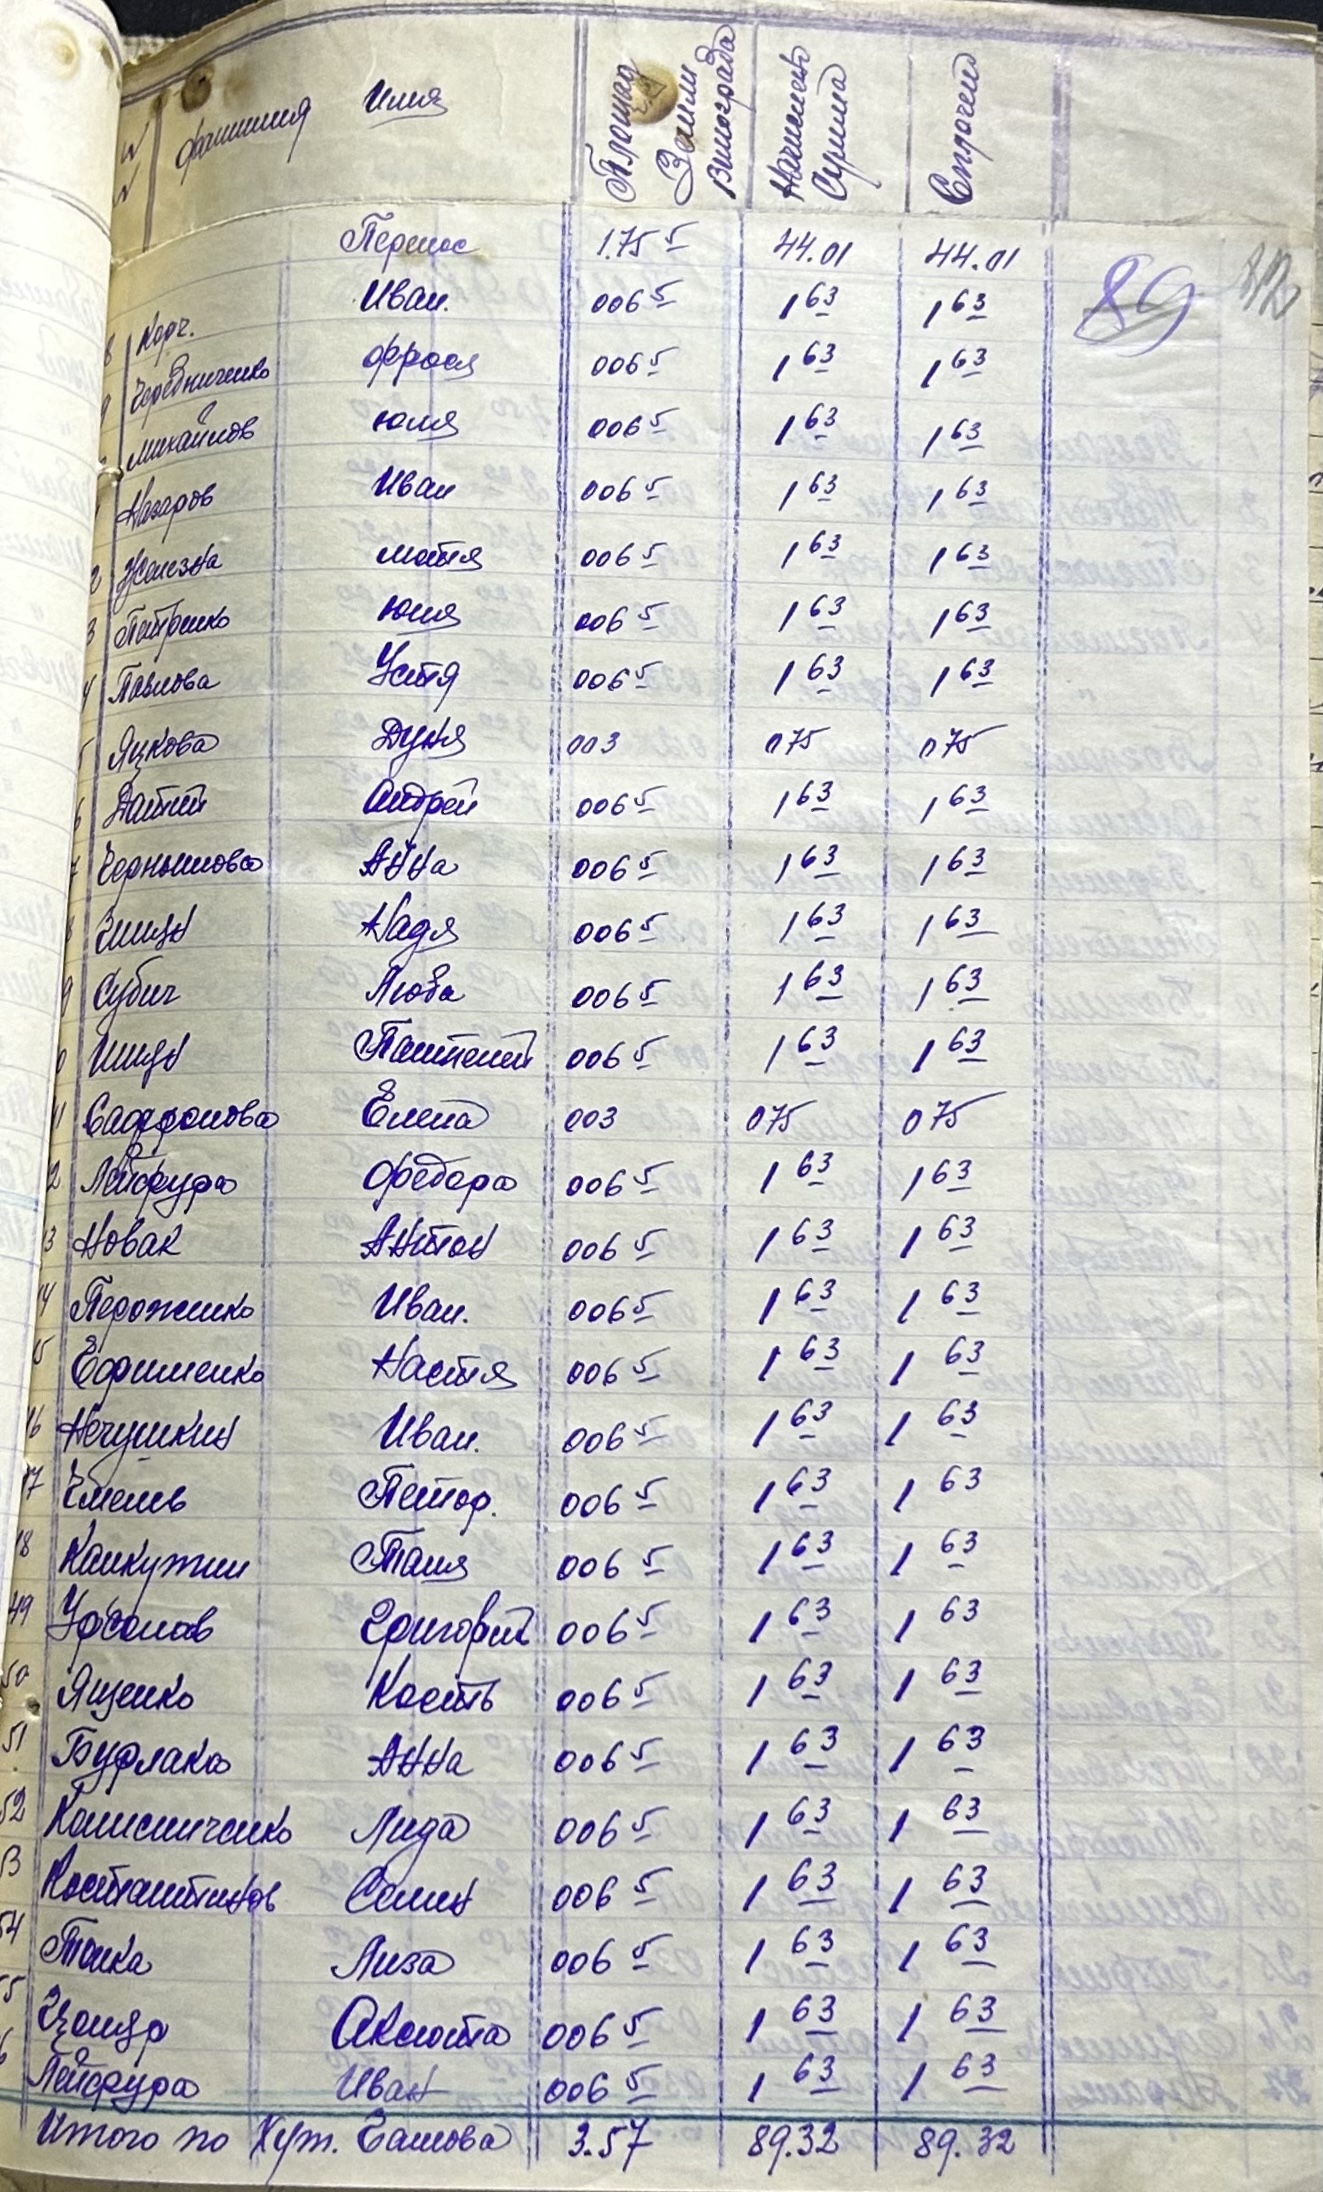 NN Фамилия Имя Площад Земли Винограда Начислено Сумма Сплочено
Перенос 1.75 5 44.01 44.01
89
8 Корч. Иван. 006 5 1 63 1 63
9 Чередниченко Фрося 006 5 1 63 1 63
Михайлов Юля 006 5 1 63 1 63
Назаров Иван 006 5 1 63 1 63
2 мотя 006 5 1 63 1 63
3 Петренко Юля 006 5 1 63 1 63
4 Павлова Устя 006 5 1 63 1 63
5 Яцкова Дуня 003 075 075
6 Андрей 006 5 1 63 1 63
7 Чернышова Анна 006 5 1 63 1 63
8 Надя 006 5 1 63 1 63
9 Субич Люба 006 5 1 63 1 63
0 006 5 1 63 1 63
41 Саффонова Елена 003 075 075
2 Лейфура Федора 006 5 1 63 1 63
43 Новак Антон 006 5 1 63 1 63
44 Иван. 006 5 1 63 1 63
45 Ефименко Настя 006 5 1 63 1 63
46 Нечушкин Иван. 006 5 1 63 1 63
47 Петор. 006 5 1 63 1 63
48 Таня 006 5 1 63 1 63
49 Григорий 006 5 1 63 1 63
50 Ященко Кость 006 5 1 63 1 63
51 Бурлака Анна 006 5 1 63 1 63
52 Колисниченко Лида 006 5 1 63 1 63
53 Костантинов Семин 006 5 1 63 1 63
54 Лиза 006 5 1 63 1 63
55 Аксюта 006 5 1 63 1 63
6 Лейфура Иван 006 5 1 63 1 63
Итого по Хут. 3.57 89.32 89.32